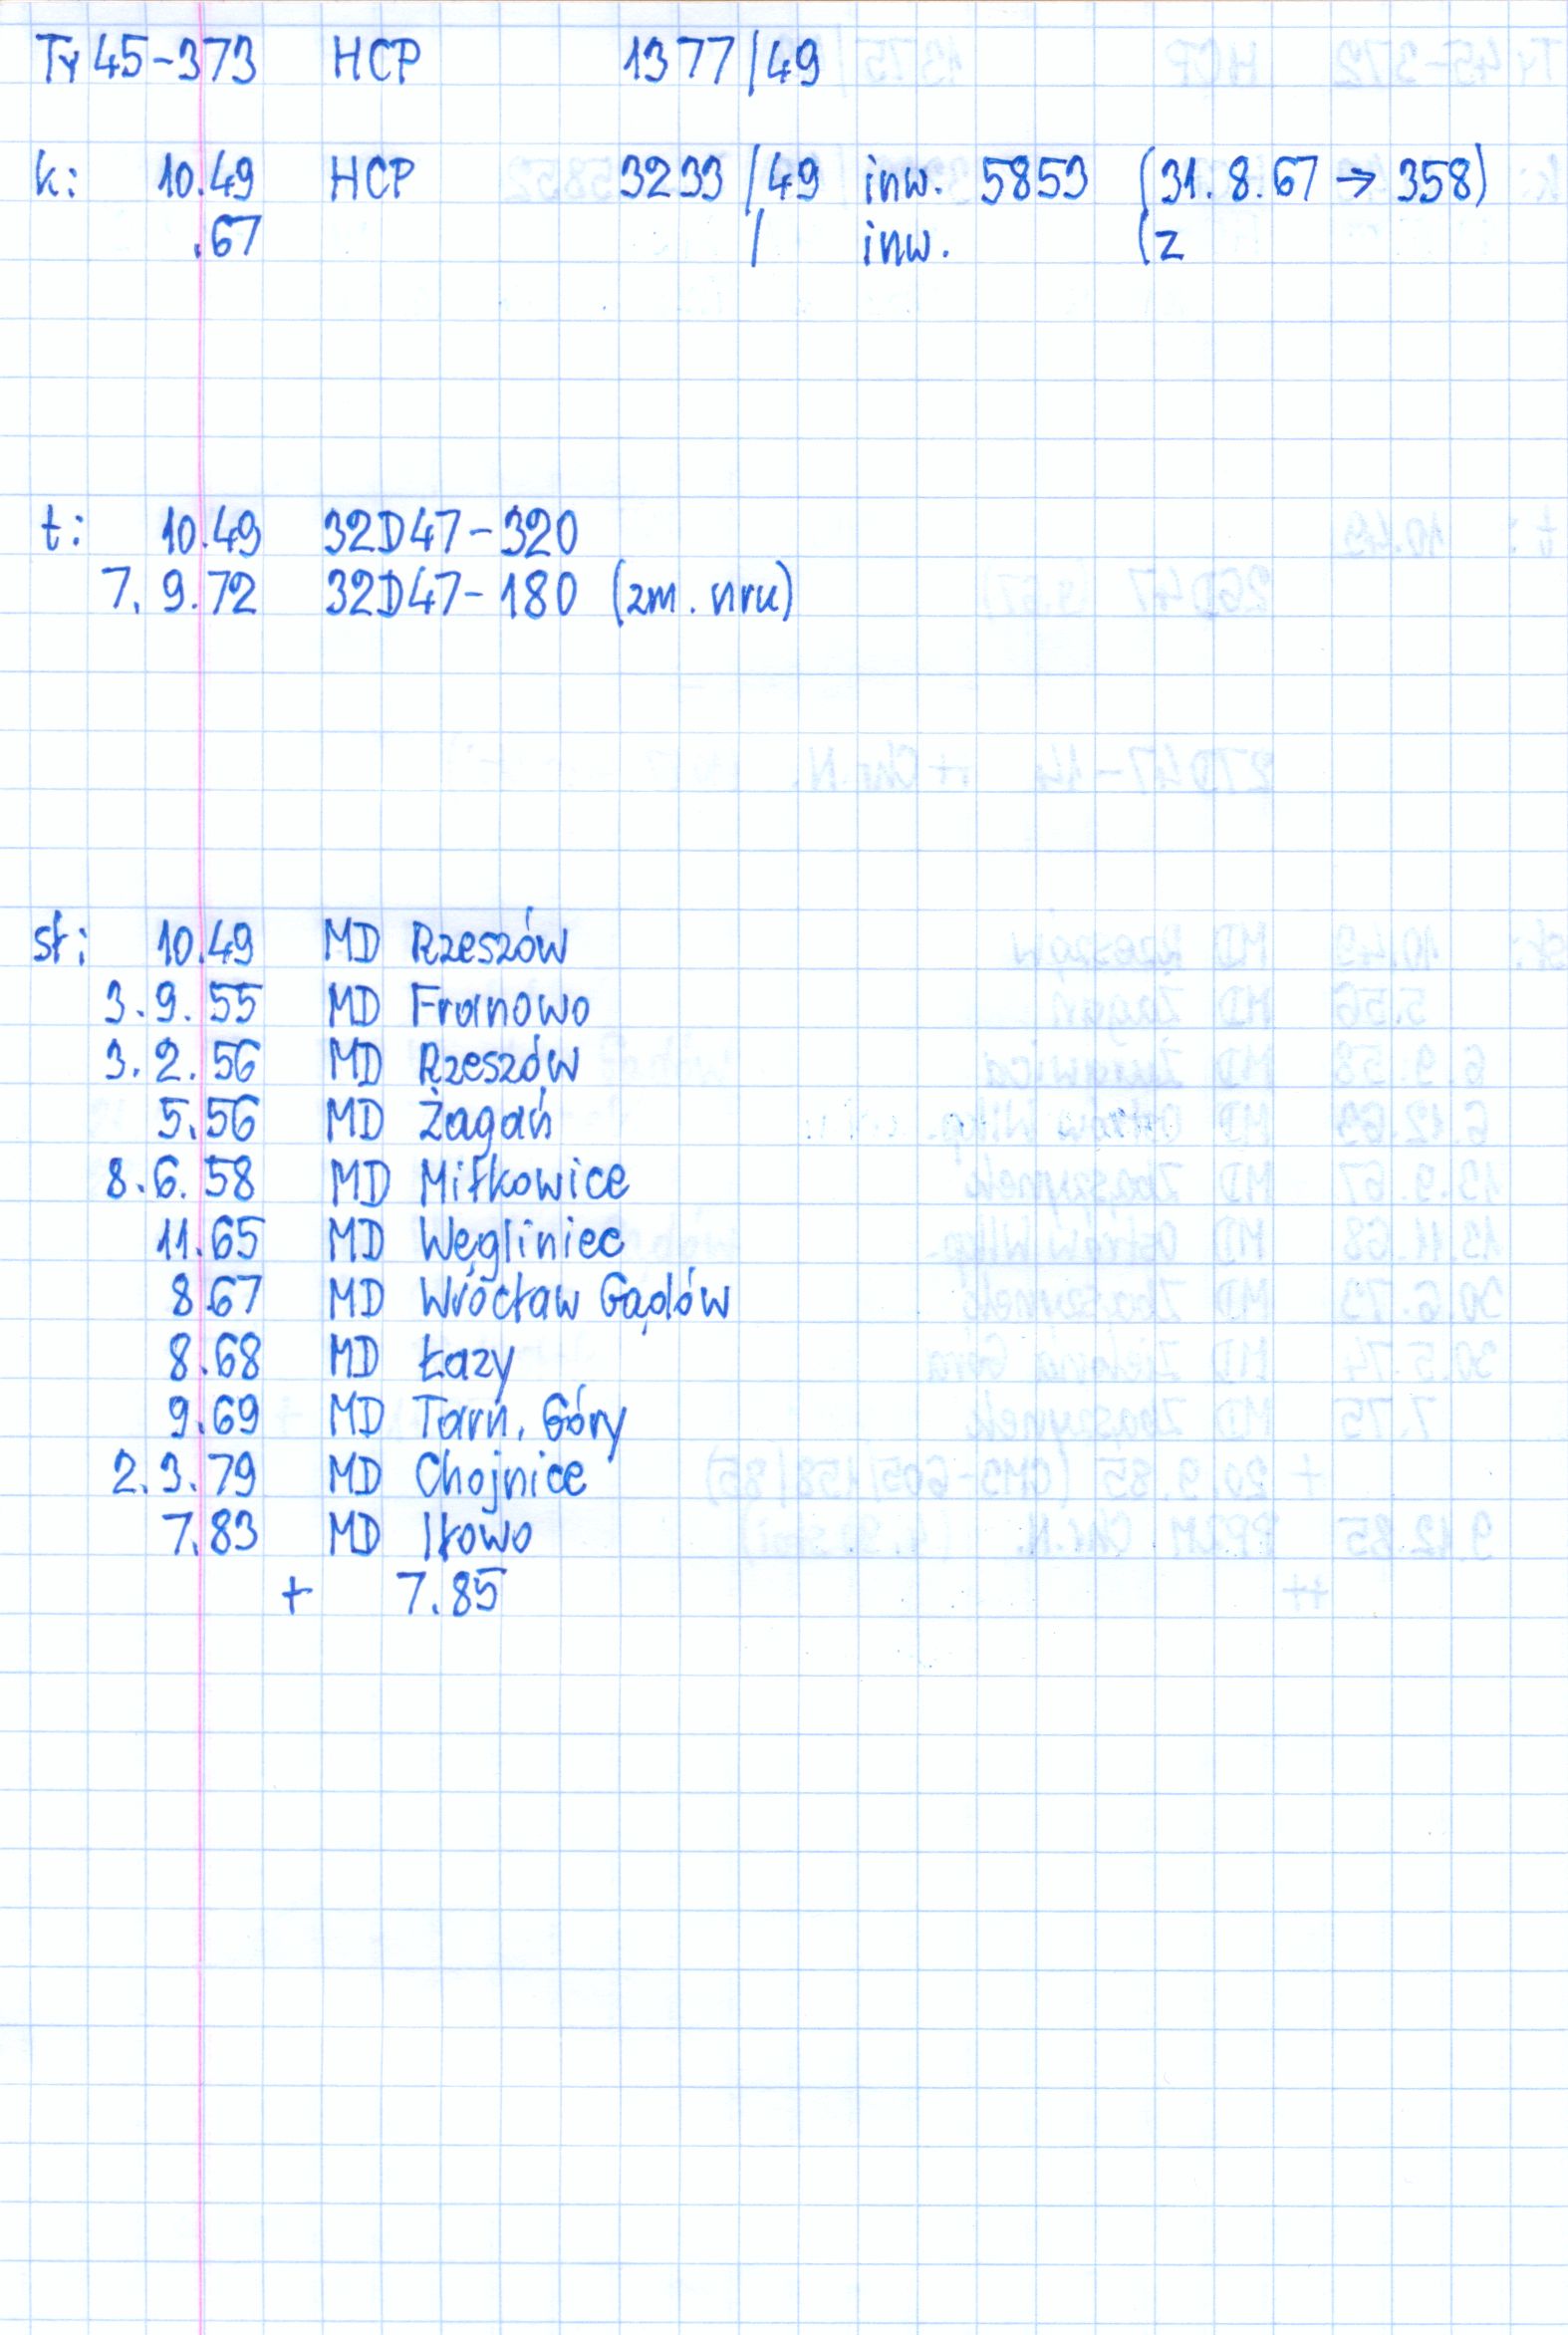 Ty 45-373 HCP 1377/49
k: 10.49 HCP 3233/49 inw. 5853 (31.8.67 → 358)
.67 / inw. (z
t: 10.49 32D47-320
7.9.72 32D47-180 (zm. nru)
st: 10.49 MD Rzeszów
3.9.55 MD Franowo
3.2.56 MD Rzeszów
5.56 MD Żagań
8.6.58 MD Miłkowice
11.65 MD Węgliniec
8.67 MD Wrocław Gądów
8.68 MD Łazy
9.69 MD Tarn. Góry
2.3.79 MD Chojnice
7.83 MD Iłowo
+ 7.85